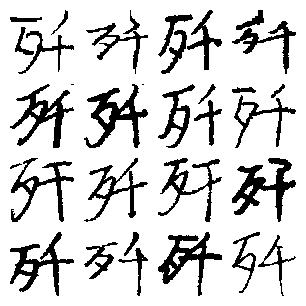 歼歼歼歼
歼歼歼歼
歼歼歼歼
歼歼歼歼